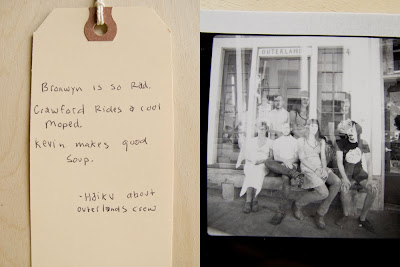 Bronwyn is so Rad.
Crawford Rides a cool
Moped.
Kevin makes good
Soup.
-Haiku about
outerlands crew
OUTERLANDS